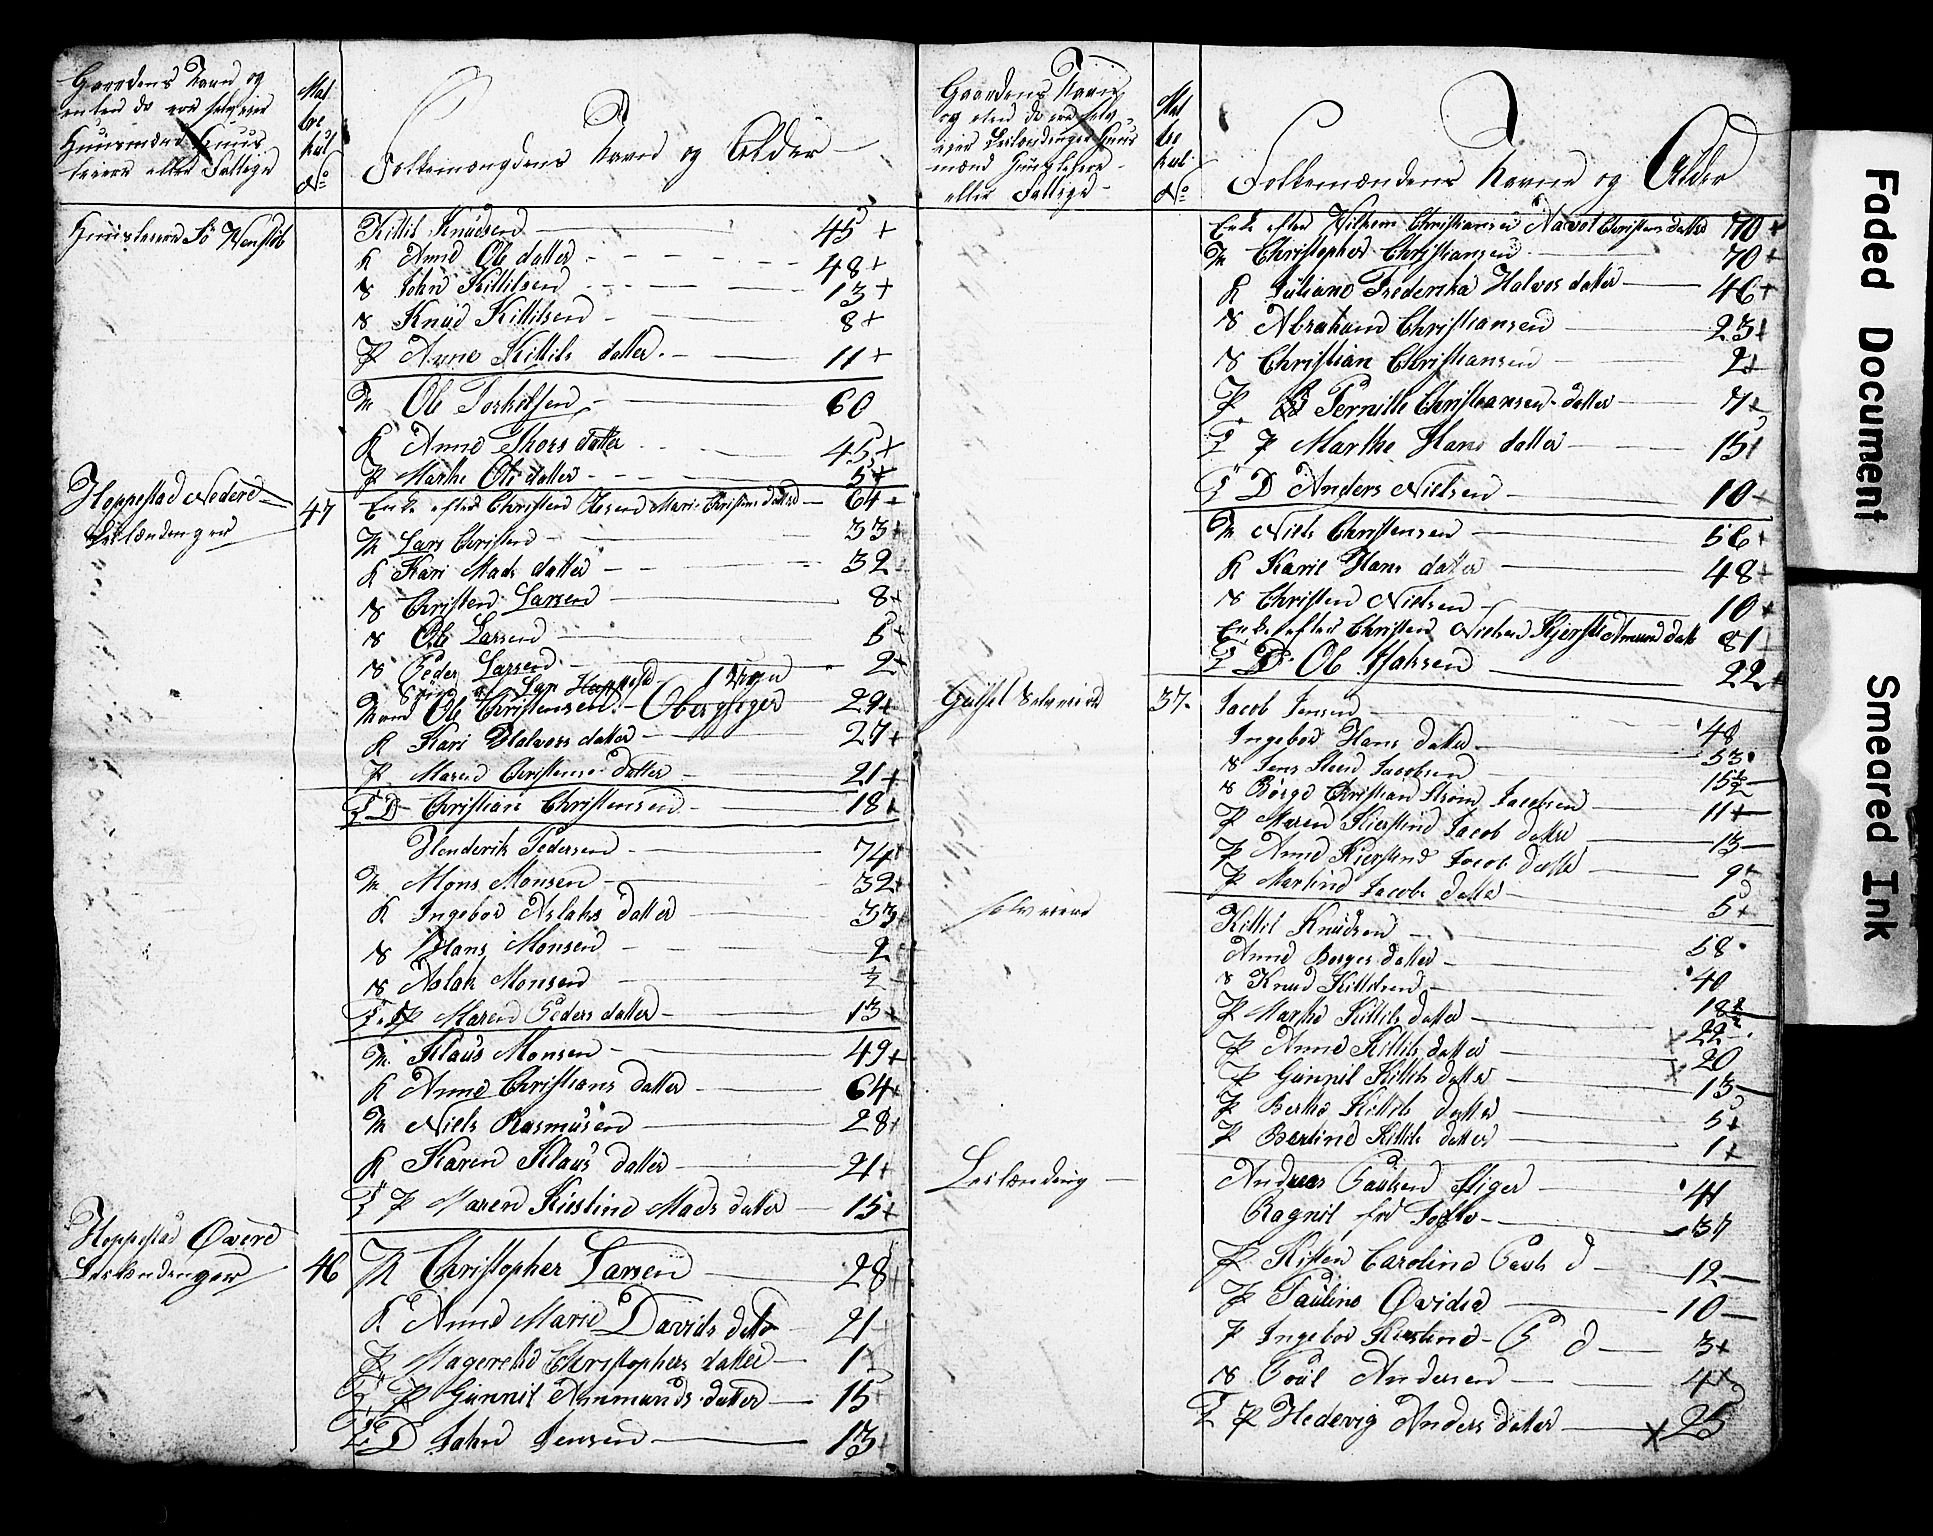 Gaardens Navn og
enten de ere selveier
Huusmænd Huus
leiere eller Fattige
Mat
ri
kul
No
Folkemængdens Navn og Alder
Huusleiere
Kittil Knudsen 45 +
K Anne Ols datter 48 +
S John Kittilsen 13 +
S Knud Kittilsen 8 +
P Anne Kittils datter 11 +
M Ole Torkelsen 60
K Anne Thors datter 45 +
P Marthe Ols datter 5 +
Hoppestad Nedere 47
Leilændinger
Enke efter Christen Olesen Mari Christens datter 64 +
M Lars Christen 33 +
K Kari Mads datter 32
S Christen Larsen 8 +
S Ole Larsen 5 +
S Peder Larsen 2 +
Søn af Lars Hoppestad
Mand Ole Christensen 29 +
K Kari Halvors datter 27 +
P Maren Christens datter 21 +
T D Christian Christensen 18 +
Henderik Pedersen 74 +
M Mons Monsen 32 +
K Ingebor Aslaks datter 33 +
S Hans Monsen 2
S Aslak Monsen ½
T P Maren Peders datter 13 +
M Klaus Monsen 49 +
K Anne Christians datter 64 +
M Niels Rasmusen 28 +
K Karen Klaus datter 21 +
T P Maren Kirstine Mads datter 15 +
Hoppestad Øvere
Leilændinger 46
M Christopher Larsen 28
K Anne Marie Davids datter 21
P Magerethe Christophers datter 1
T P Gunnil Ammunds datter 15
T D John Jensen 13
Gaardens Navn
og enten de ere selv
eier Leilændinger Huus
mænd Huusleiere
eller Fattige
Mat
ri
kul
No
Folkemændens Navne og Alder
Enke efter Wilhem Christiansen Christens datter 70 +
M Christopher Christiansen 70 +
K Juliane Frederika Halvors datter 46 +
S Abraham Christiansen 23 +
S Christian Christiansen 2 +
P Pernille Christiansen datter 7 +
T P Marthe Hans datter 15
T D Anders Nielsen 10
M Niels Christensen 56 +
K Karie Hans datter 48 +
S Christen Nielsen 10 +
Enke efter Christen Nielsen Kjersti Amund datt 81
T D Ole Isaksen 22 +
Selveiere 37
Jacob Jensen 48
Ingebor Hans datter 53
S Jens Steen Jacobsen 15 ½
S Børge Christian Strøm Jacobsen 11 +
P Maren Kierstine Jacob datter 13
P Anne Kierstine Jacob datter 9 +
P Martine Jacobs datter 5 +
selveiere
Kittil Knudsen 58
Anne Børges datter 40
S Knud Kittelsen 18
P Marthe Kittils datter 22
P Anne Kittils datter 20
P Gunnil Kittils datter 13
P Berthe Kittils datter 5 +
P Bertine Kittils datter 1 +
Leilænding
Andreas Paulsen Stiger 41
Ragnil 37
P Kisten Caroline Pauls d 12
P Pauline 10
P Ingebor Kirstine P d 3 +
S Poul Andersen 4 +
T P Hedevig Anders datter x 25
Faded Document
Smeared Ink